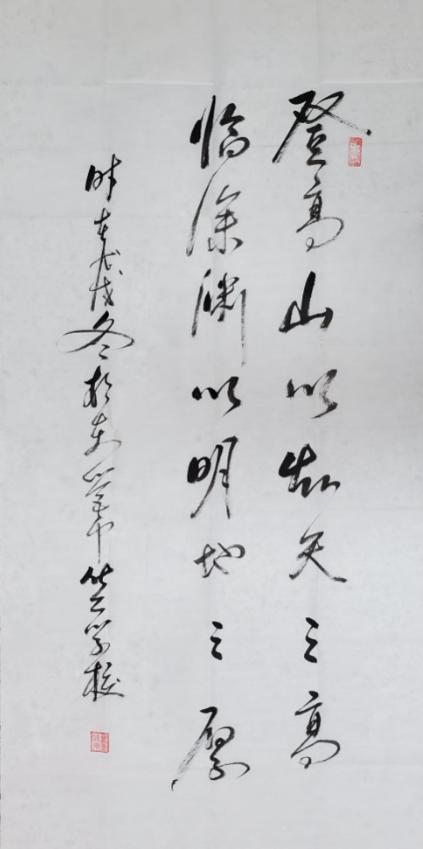 登高山以知天之高
临深渊以明地之厚
时在戊戌冬于东莞中学校